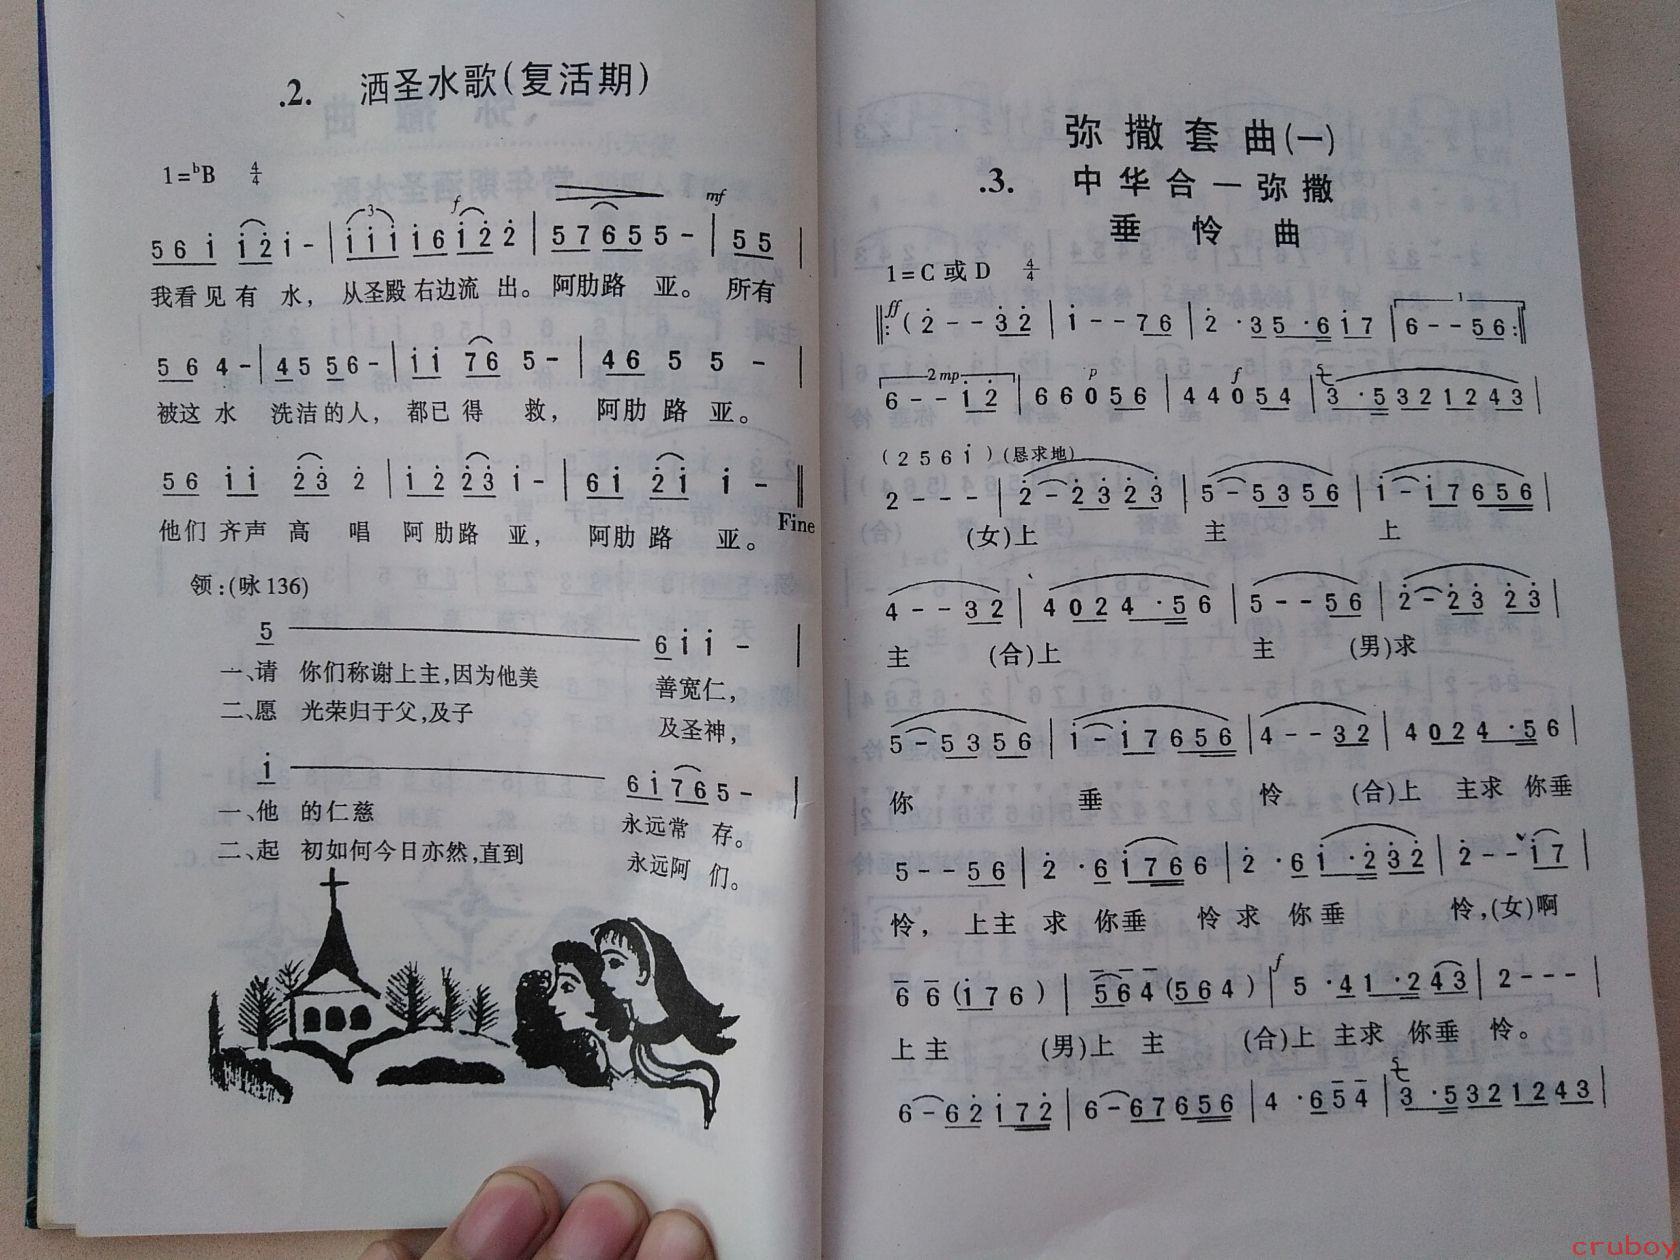 .2. 洒圣水歌(复活期)
1=ᵇB 4/4
3 f mf
5 6 i i 2 i - | i i i i 6 i 2 2 | 5 7 6 5 5 - | 5 5 |
我看见有 水， 从圣殿右边流 出。 阿肋路 亚。 所有
5 6 4 - | 4 5 5 6 - | i i 7 6 5 - | 4 6 5 5 - |
被这 水 洗洁的人， 都已得 救， 阿肋 路 亚。
5 6 i i 2 3 2 | i 2 2 3 i - | 6 i 2 i i - ‖
他们 齐声 高 唱 阿肋路 亚， 阿肋 路 亚。 Fine
领:(咏136)
5 6 i i - |
一、请 你们称谢上主，因为他美 善宽仁，
二、愿 光荣归于父，及子 及圣神，
i 6 i 7 6 5 - |
一、他 的仁慈 永远常 存。
二、起 初如何今日亦然，直到 永远阿 们。
弥撒套曲(一)
.3. 中华合一弥撒
垂怜曲
1=C 或 D 4/4
ff 1
‖: ( 2 - - 3 2 | i - - 7 6 | 2 · 3 5 · 6 i 7 | 6 - - 5 6 :‖
2 mp p f
6 - - i 2 | 6 6 0 5 6 | 4 4 0 5 4 | 3 · 5 3 2 1 2 4 3 |
( 2 5 6 i ) (恳求地)
2 - - - | 2 - 2 3 2 3 | 5 - 5 3 5 6 | i - i 7 6 5 6 |
(女)上 主 上
4 - - 3 2 | 4 0 2 4 · 5 6 | 5 - - 5 6 | 2 - 2 3 2 3 |
主 (合)上 主 (男)求
5 - 5 3 5 6 | i - i 7 6 5 6 | 4 - - 3 2 | 4 0 2 4 · 5 6 |
你 垂 怜 (合)上 主求 你垂
5 - - 5 6 | 2 · 6 i 7 6 6 | 2 · 6 i · 2 3 2 | 2 - - i 7 |
怜， 上主 求 你垂 怜求 你垂 怜，(女)啊
f
6 6 ( i 7 6 ) | 5 6 4 ( 5 6 4 ) | 5 · 4 1 · 2 4 3 | 2 - - - |
上主 (男)上 主 (合)上 主求 你垂 怜。
6 - 6 2 i 7 2 | 6 - 6 7 6 5 6 | 4 · 6 5 4 | 3 · 5 3 2 1 2 4 3 |
cruboy